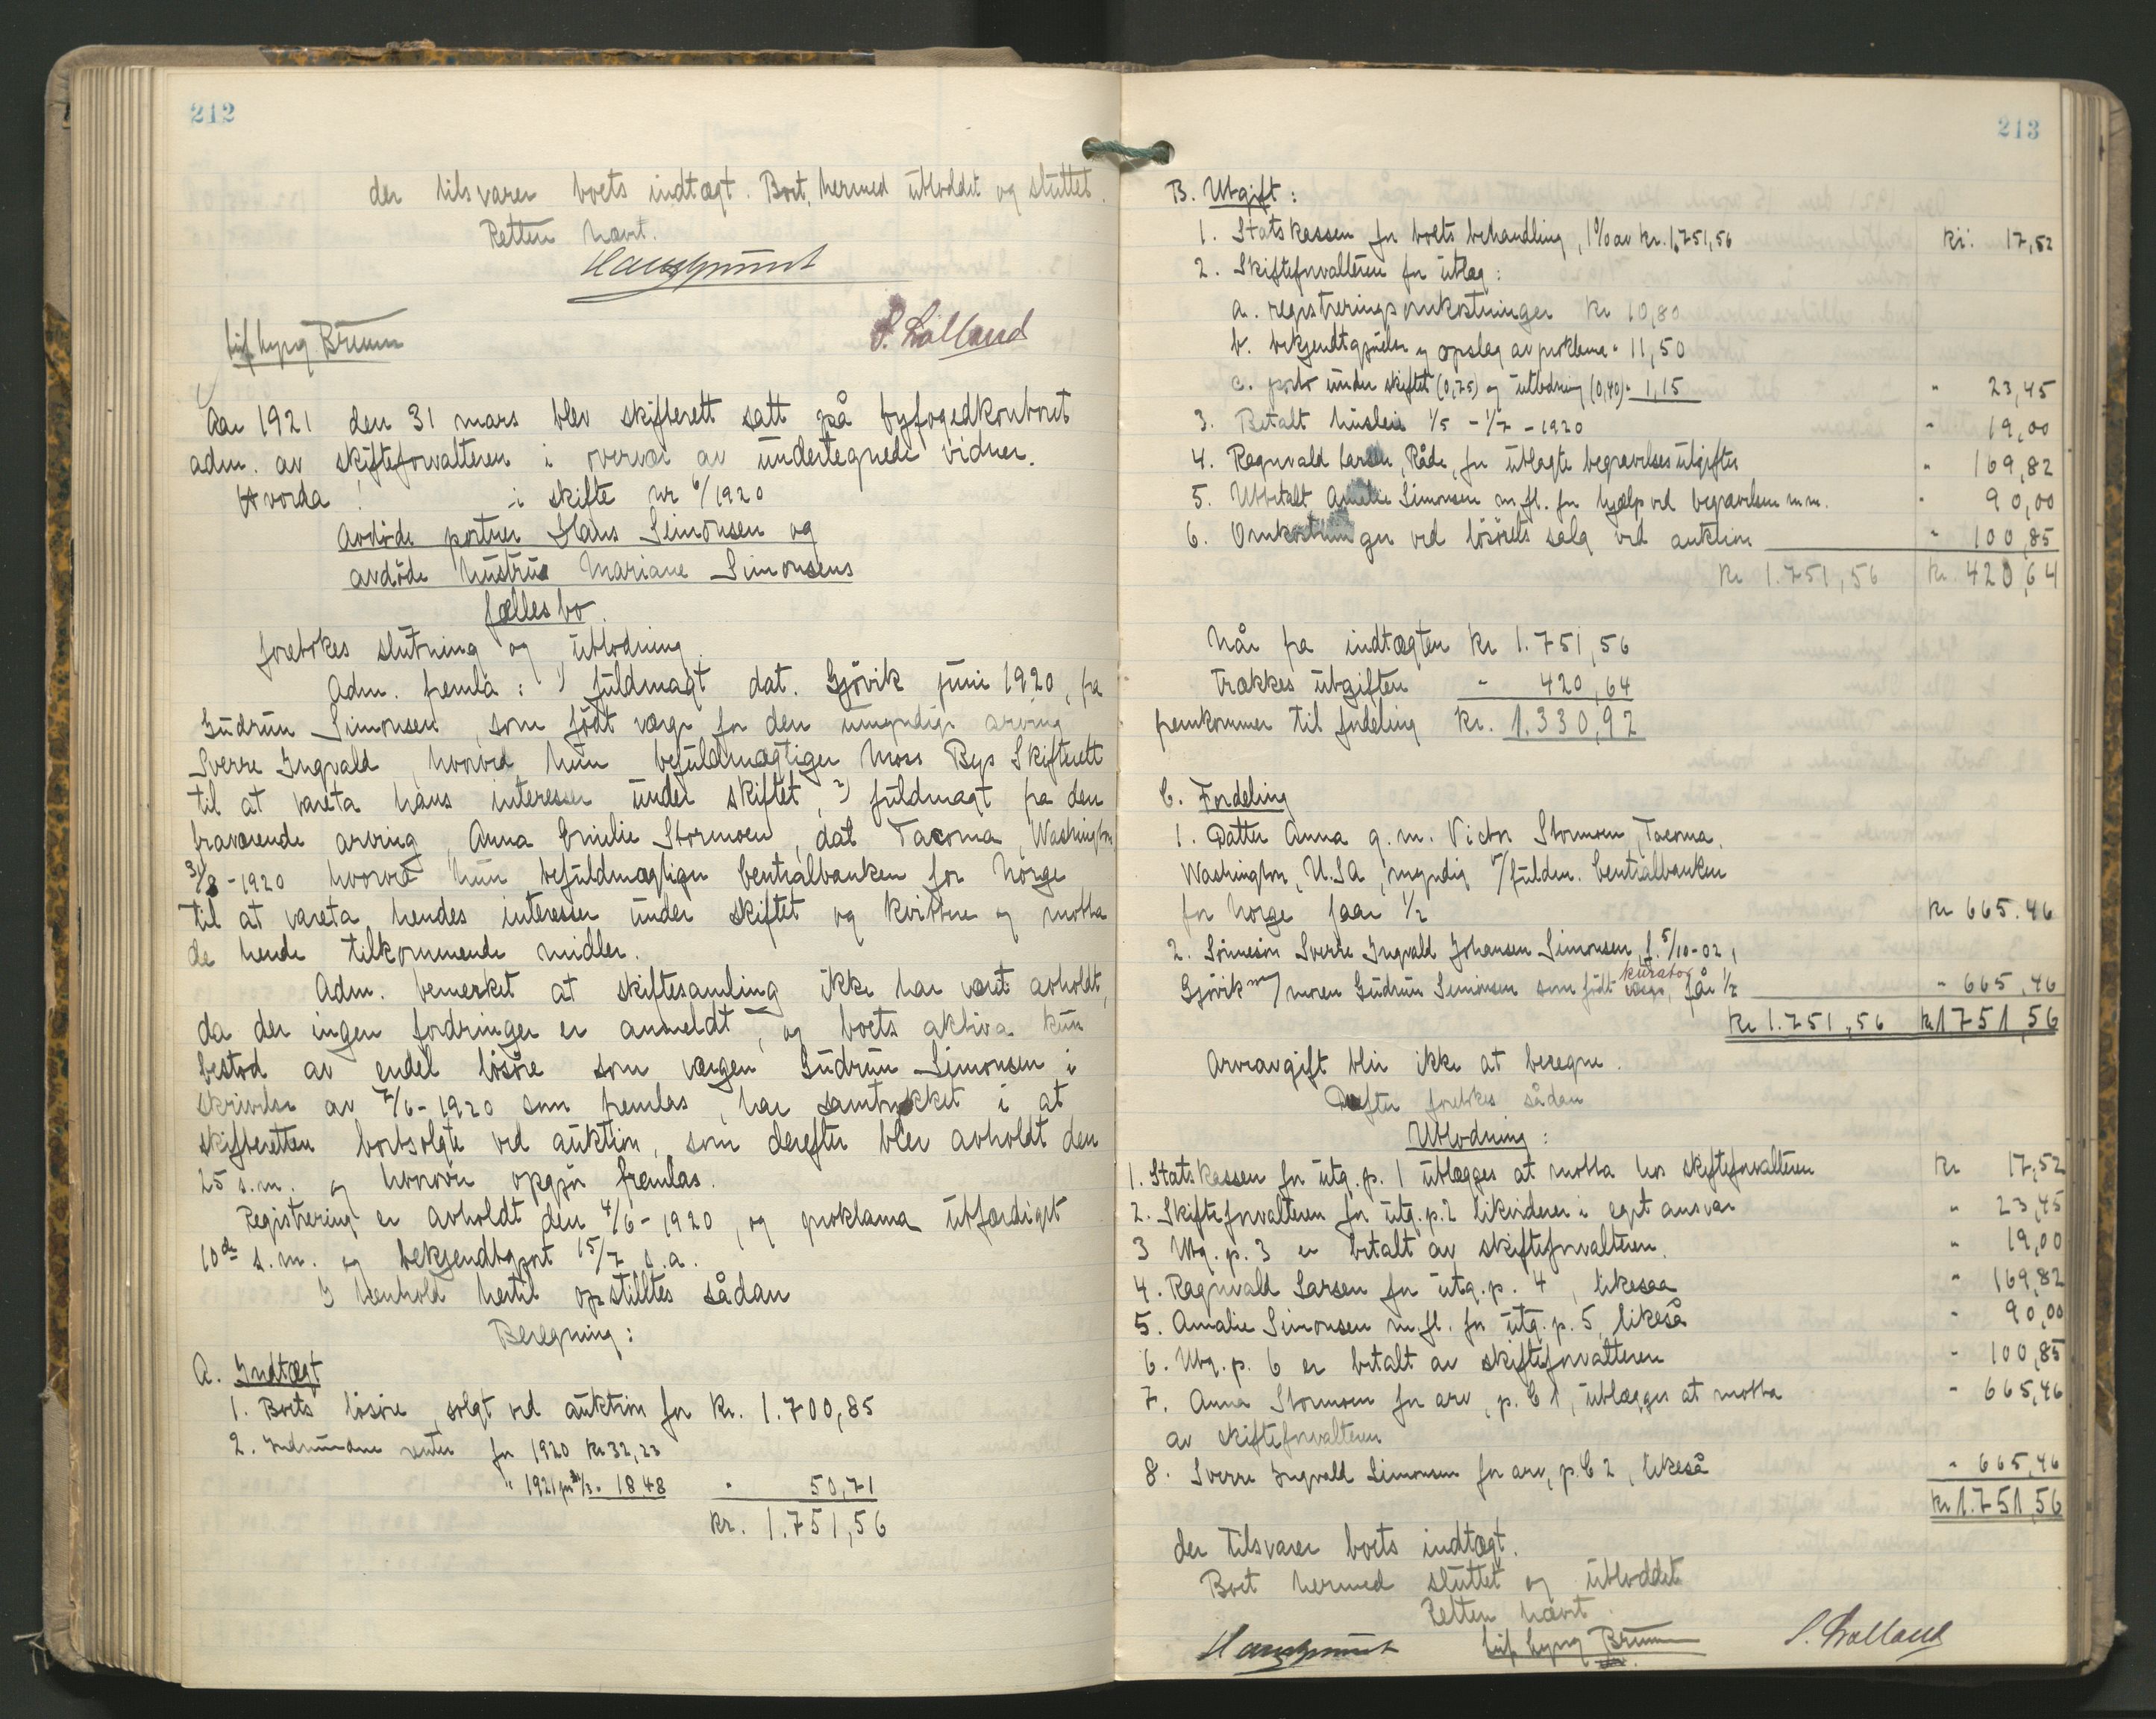 212
der tilsvarer boets indtægt. Boet hermed utloddet og sluttet.
Retten hævt.
Leif Lyng Bruun
S. Lolland
Aar 1921 den 31 mars blev skifterett satt på byfogedkontoret
adm. av skifteforvalteren i overvær av undertegnede vidner.
Hvorda!
i skifte nr 6/1920
Avdöde portner Hans Simonsen og
avdöde hustru Mariane Simonsens
fællesbo.
foretokes slutning og utlodning.
Adm. fremla: 1) fuldmagt dat. Gjövik juni 1920, fra
Gudrun Simonsen, som födt værge for den umyndige arving
Sverre Ingvald, hvorved hun befuldmægtiger Moss Bys Skifterett
til at vareta hans interesser under skiftet, 2) fuldmagt fra den
fraværende arving, Anna Emilie Stormoen, dat Tacoma, Washington
31/8 - 1920 hvorved hun befuldmægtiger Centralbanken for Norge
til at vareta hendes interesser under skiftet og kvittere og motta
de hende tilkommende midler.
Adm. bemerket at skiftesamling ikke har været avholdt,
da der ingen fordringer er anmeldt, og boets aktiva kun
bestod av endel lösöre som værgen Gudrun Simonsen i
skrivelse av 7/6 - 1920 som fremlas, har samtykket i at
skifteretten bortsolgte ved auktion, som derefter blev avholdt den
25 s.m. og hvorover opgjör fremlas.
Registrering er avholdt den 4/6 - 1920, og proklama utfærdiget
10de s.m. og bekjendtgjort 15/7 s.a.
I henhold hertil opstilltes sådan
Beregning:
A. Indtægt
1. Boets lösöre, solgt ved auktion for Kr. 1.700,85
2. Indvundne renter for 1920 Kr 32,23
" 1921 pr 31/3 " 18.48 " 50,71
Kr. 1.751,56
213
B. Utgift:
1. Statskassen for boets behandling, 1% av kr. 1.751,56 Kr. 17,52
2. Skifteforvalteren for utlæg:
a. registreringsomkostninger Kr 10,80
b. bekjendtgjörelse og opslag av proklama " 11,50
c. porto under skiftet (0,75) og utlodning (0,40) " 1,15 " 23,45
3. Betalt husleie 1/5 - 1/7 - 1920 " 19,00
4. Ragnvald Larsen, Råde, for utlagte begravelsesutgifter " 169,82
5. Utbetalt Amalie Simonsen m.fl. for hjælp ved begravelsen m.m. " 90,00
6. Omkostninger ved lösörets salg ved auktion " 100,85
Kr 1.751,56 Kr. 420,64
Når fra indtægten Kr 1.751,56
trækkes utgiften " 420,64
fremkommer til fordeling Kr. 1.330,92
C. Fordeling
1. Datter Anna g. m. Victor Stormoen, Tacoma,
Washington, U.S.A, myndig v/fuldm. Centralbanken
for Norge faar 1/2 Kr 665.46
2. Sönnesön Sverre Ingvald Johansen Simonsen, f. 5/10-02,
kurator
Gjövik m/moren Gudrun Simonsen som födt værge, får 1/2 " 665,46
Kr 1.751,56 Kr 1751,56
Arveavgift blir ikke at beregne.
Derefter foretokes sådan
Utlodning:
1. Statskassen for utg. p. 1 utlægges at motta hos skifteforvalteren Kr 17,52
2. Skifteforvalteren for utg. p. 2 likviderer i eget ansvar " 23,45
3 Utg. p. 3 er betalt av skifteforvalteren. " 19,00
4. Ragnvald Larsen for utg. p. 4, likesaa " 169,82
5. Amalie Simonsen m.fl. for utg. p. 5, likeså " 90,00
6. Utg. p. 6 er betalt av skifteforvalteren " 100,85
7. Anna Stormoen for arv, p. C 1, utlægges at motta " 665,46
av skifteforvalteren
8. Sverre Ingvald Simonsen for arv, p. C 2, likeså " 665,46
Kr 1.751,56
der tilsvarer boets indtægt.
Boet hermed sluttet og utloddet
Retten hævt.
Leif Lyng Bruun
S. Lolland